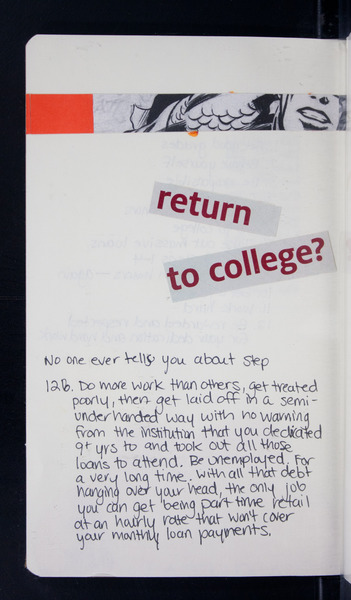 return
to college?
No one ever tells you about step
12b. Do more work than others, get treated
poorly, then get laid off in a semi-
underhanded way with no warning
from the institution that you dedicated
9+ yrs to and took out all those
loans to attend. Be unemployed. For
a very long time. With all that debt
hanging over your head, the only job
you can get being part time retail
at an hourly rate that won't cover
your monthly loan payments.